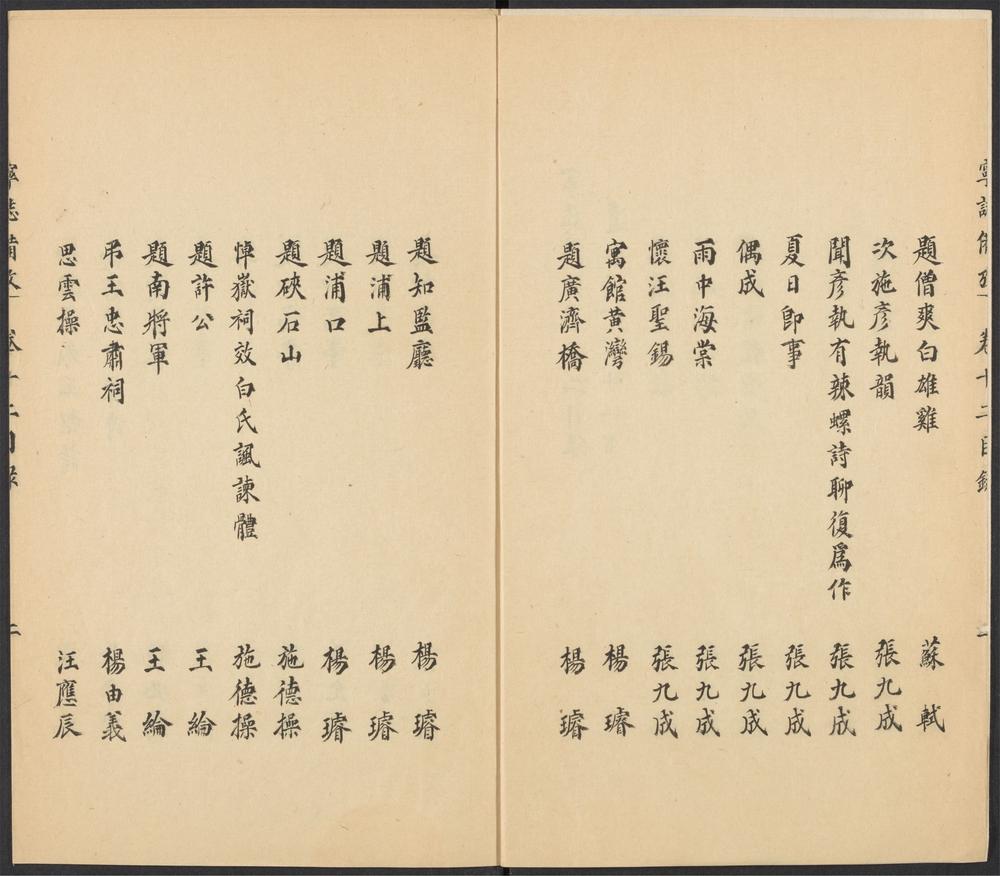 寧誌備攷 卷十二目錄 一
題僧爽白雄雞 蘇軾
次施彥執韻 張九成
聞彥執有辣螺詩聊復爲作 張九成
夏日卽事 張九成
偶成 張九成
雨中海棠 張九成
懷汪聖錫 張九成
寓館黃灣 楊璿
題廣濟橋 楊璿
題知監廳 楊璿
題浦上 楊璿
題浦口 楊璿
題硤石山 施德操
悼嶽祠效白氏諷諫體 施德操
題許公 王綸
題南將軍 王綸
弔王忠肅祠 楊由義
思雲操 汪應辰
寧誌備攷 卷十二目錄 二